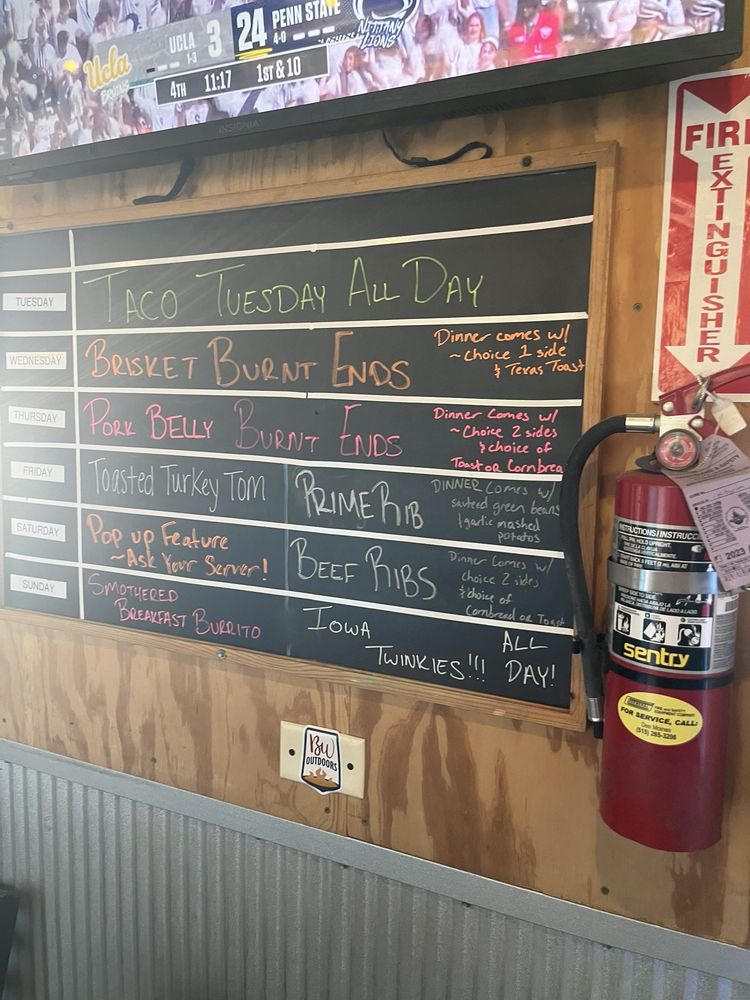 Ucla
UCLA
1-3
3
24
PENN STATE
4-0
NITTANY
LIONS
4TH 11:17 1ST & 10
INSIGNIA
TUESDAY
TACO TUESDAY ALL DAY
WEDNESDAY
BRISKET BURNT ENDS
Dinner comes w/
~ Choice 1 side
& Texas Toast
THURSDAY
PORK BELLY BURNT ENDS
Dinner comes w/
~ Choice 2 sides
& choice of
Toast or Cornbrea
FRIDAY
Toasted Turkey Tom
PRIME RIB
DINNER comes w/
sauteed green beans
garlic mashed
potatos
SATURDAY
Pop up Feature
~ Ask Your Server!
BEEF RIBS
Dinner comes w/
choice 2 sides
& choice of
Cornbread or Toast
SUNDAY
SMOTHERED
BREAKFAST BURRITO
IOWA
TWINKIES!!!
ALL
DAY!
BW
OUTDOORS
FIRE
EXTINGUISHER
INSTRUCTIONS/INSTRUCC
2023
sentry
FOR SERVICE, CALL:
Des Moines
(515) 265-3206